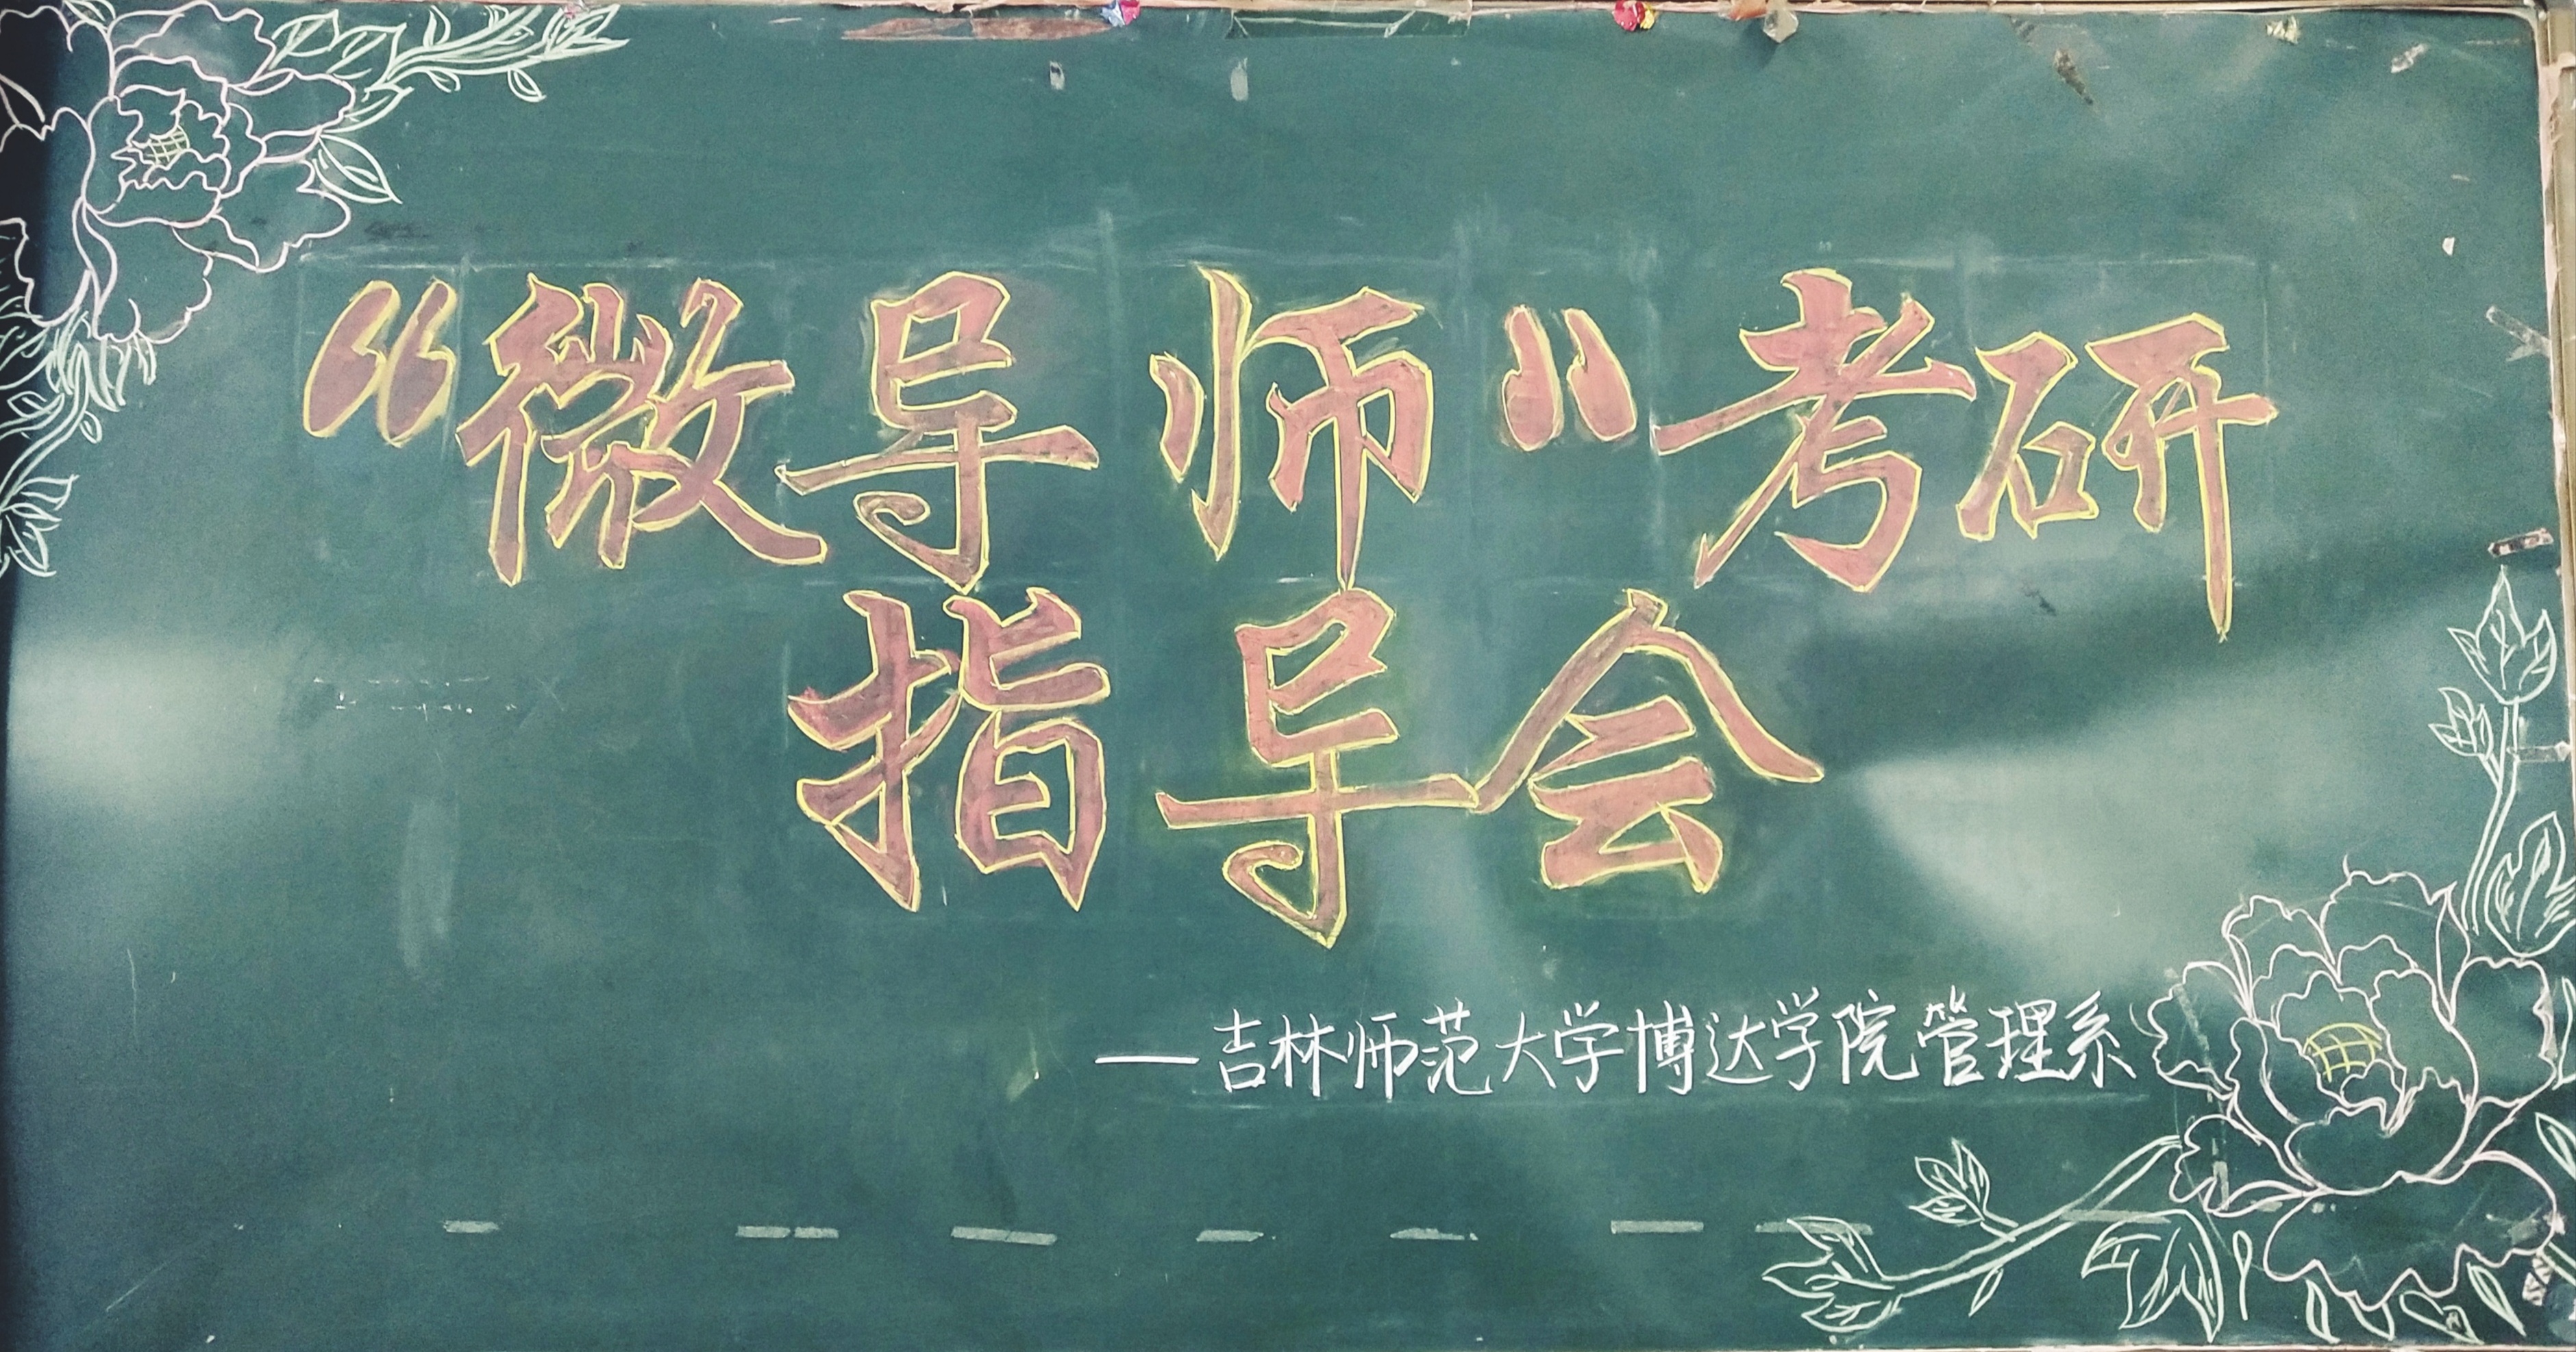 “微导师”考研
指导会
—吉林师范大学博达学院管理系